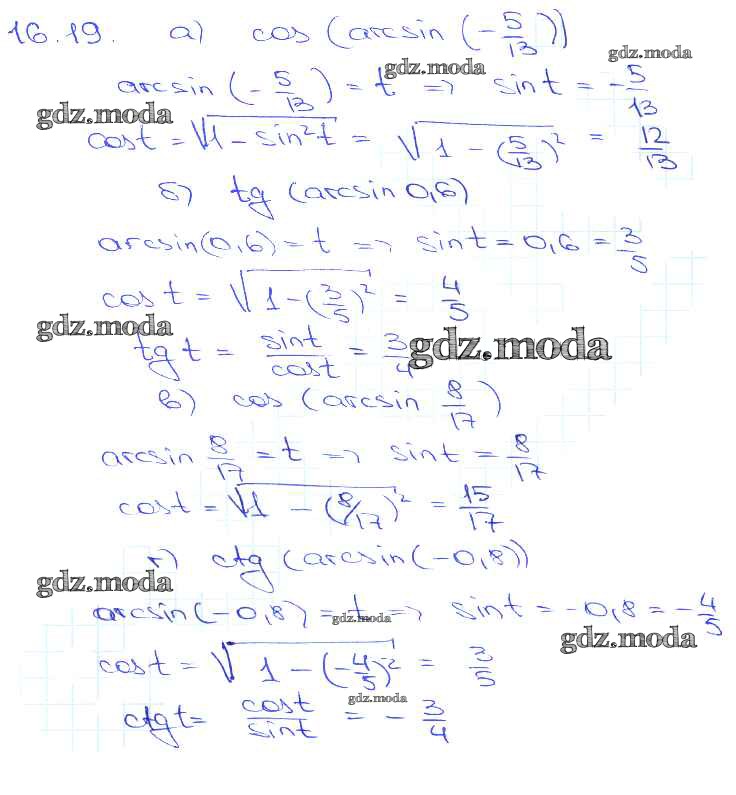 16.19. а) cos (arcsin (-5/13))
gdz.moda
arcsin (-5/13) = t => sin t = -5/13
gdz.moda
gdz.moda
cos t = √(1 - sin²t) = √(1 - (5/13)²) = 12/13
б) tg (arcsin 0,6)
arcsin(0,6) = t => sin t = 0,6 = 3/5
cos t = √(1 - (3/5)²) = 4/5
gdz.moda
tg t = sin t/cos t = 3/4
gdz.moda
в) cos (arcsin 8/17)
arcsin 8/17 = t => sin t = 8/17
cos t = √(1 - (8/17)²) = 15/17
г) ctg (arcsin(-0,8))
gdz.moda
arcsin(-0,8) = t => sin t = -0,8 = -4/5
gdz.moda
gdz.moda
cos t = √(1 - (-4/5)²) = 3/5
gdz.moda
ctg t = cos t/sin t = - 3/4